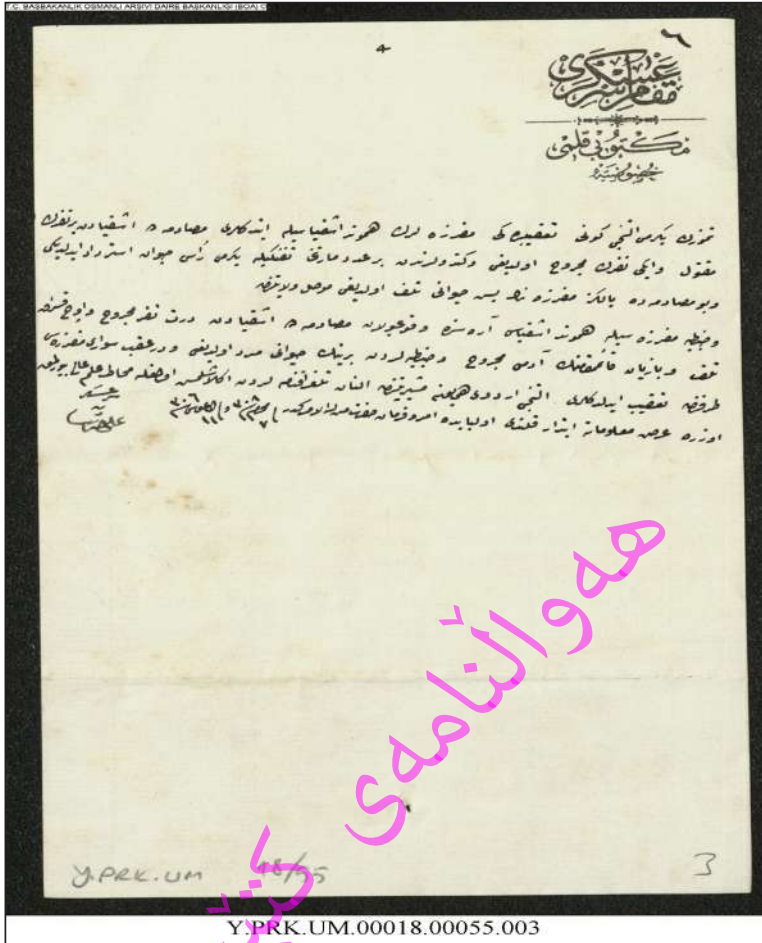 T.C. BAŞBAKANLIK OSMANLI ARŞİVİ DAİRE BAŞKANLIĞI (BOA)
٦
مقام سر عسكری
مكتوبی قلمی
تموزك يكرمی التنجی كونی تعقيبده كی مفرزه لرك هموند اشقياسيله ايتدكلری مصادمه ده اشقيادن بر نفرك
مقتول وايكی نفرك مجروح اولديغی بر عدد مارتين تفنكيله يكرمی رأس حيوان استرداد ايدلديكی
وبو مصادمه ده يالكز مفرزه نك بش حيوانی تلف اولديغی موصل ولايتندن
وضبطيه مفرزه سيله هموند اشقياسی آره سنده وقوعبولان مصادمه ده اشقيادن درت نفر مجروح واوچ
تلف آدمی مجروح وضبطيه لردن برينك حيوانی اولديغی ودرعقب سواری مفرزه سی
طرفندن تعقيب ايدلدكلری التنجی اردوی همايون مشيريتندن النان تلغرافنامه لردن اكلاشلمش اولمغله
اوزره عرض معلوماته ابتدار قلندی اولبابده امر وفرمان حضرت من له الامركدر
سر عسكر
Y.PRK.UM 18/55
3
هەواڵنامەی کتێ
Y.PRK.UM.00018.00055.003